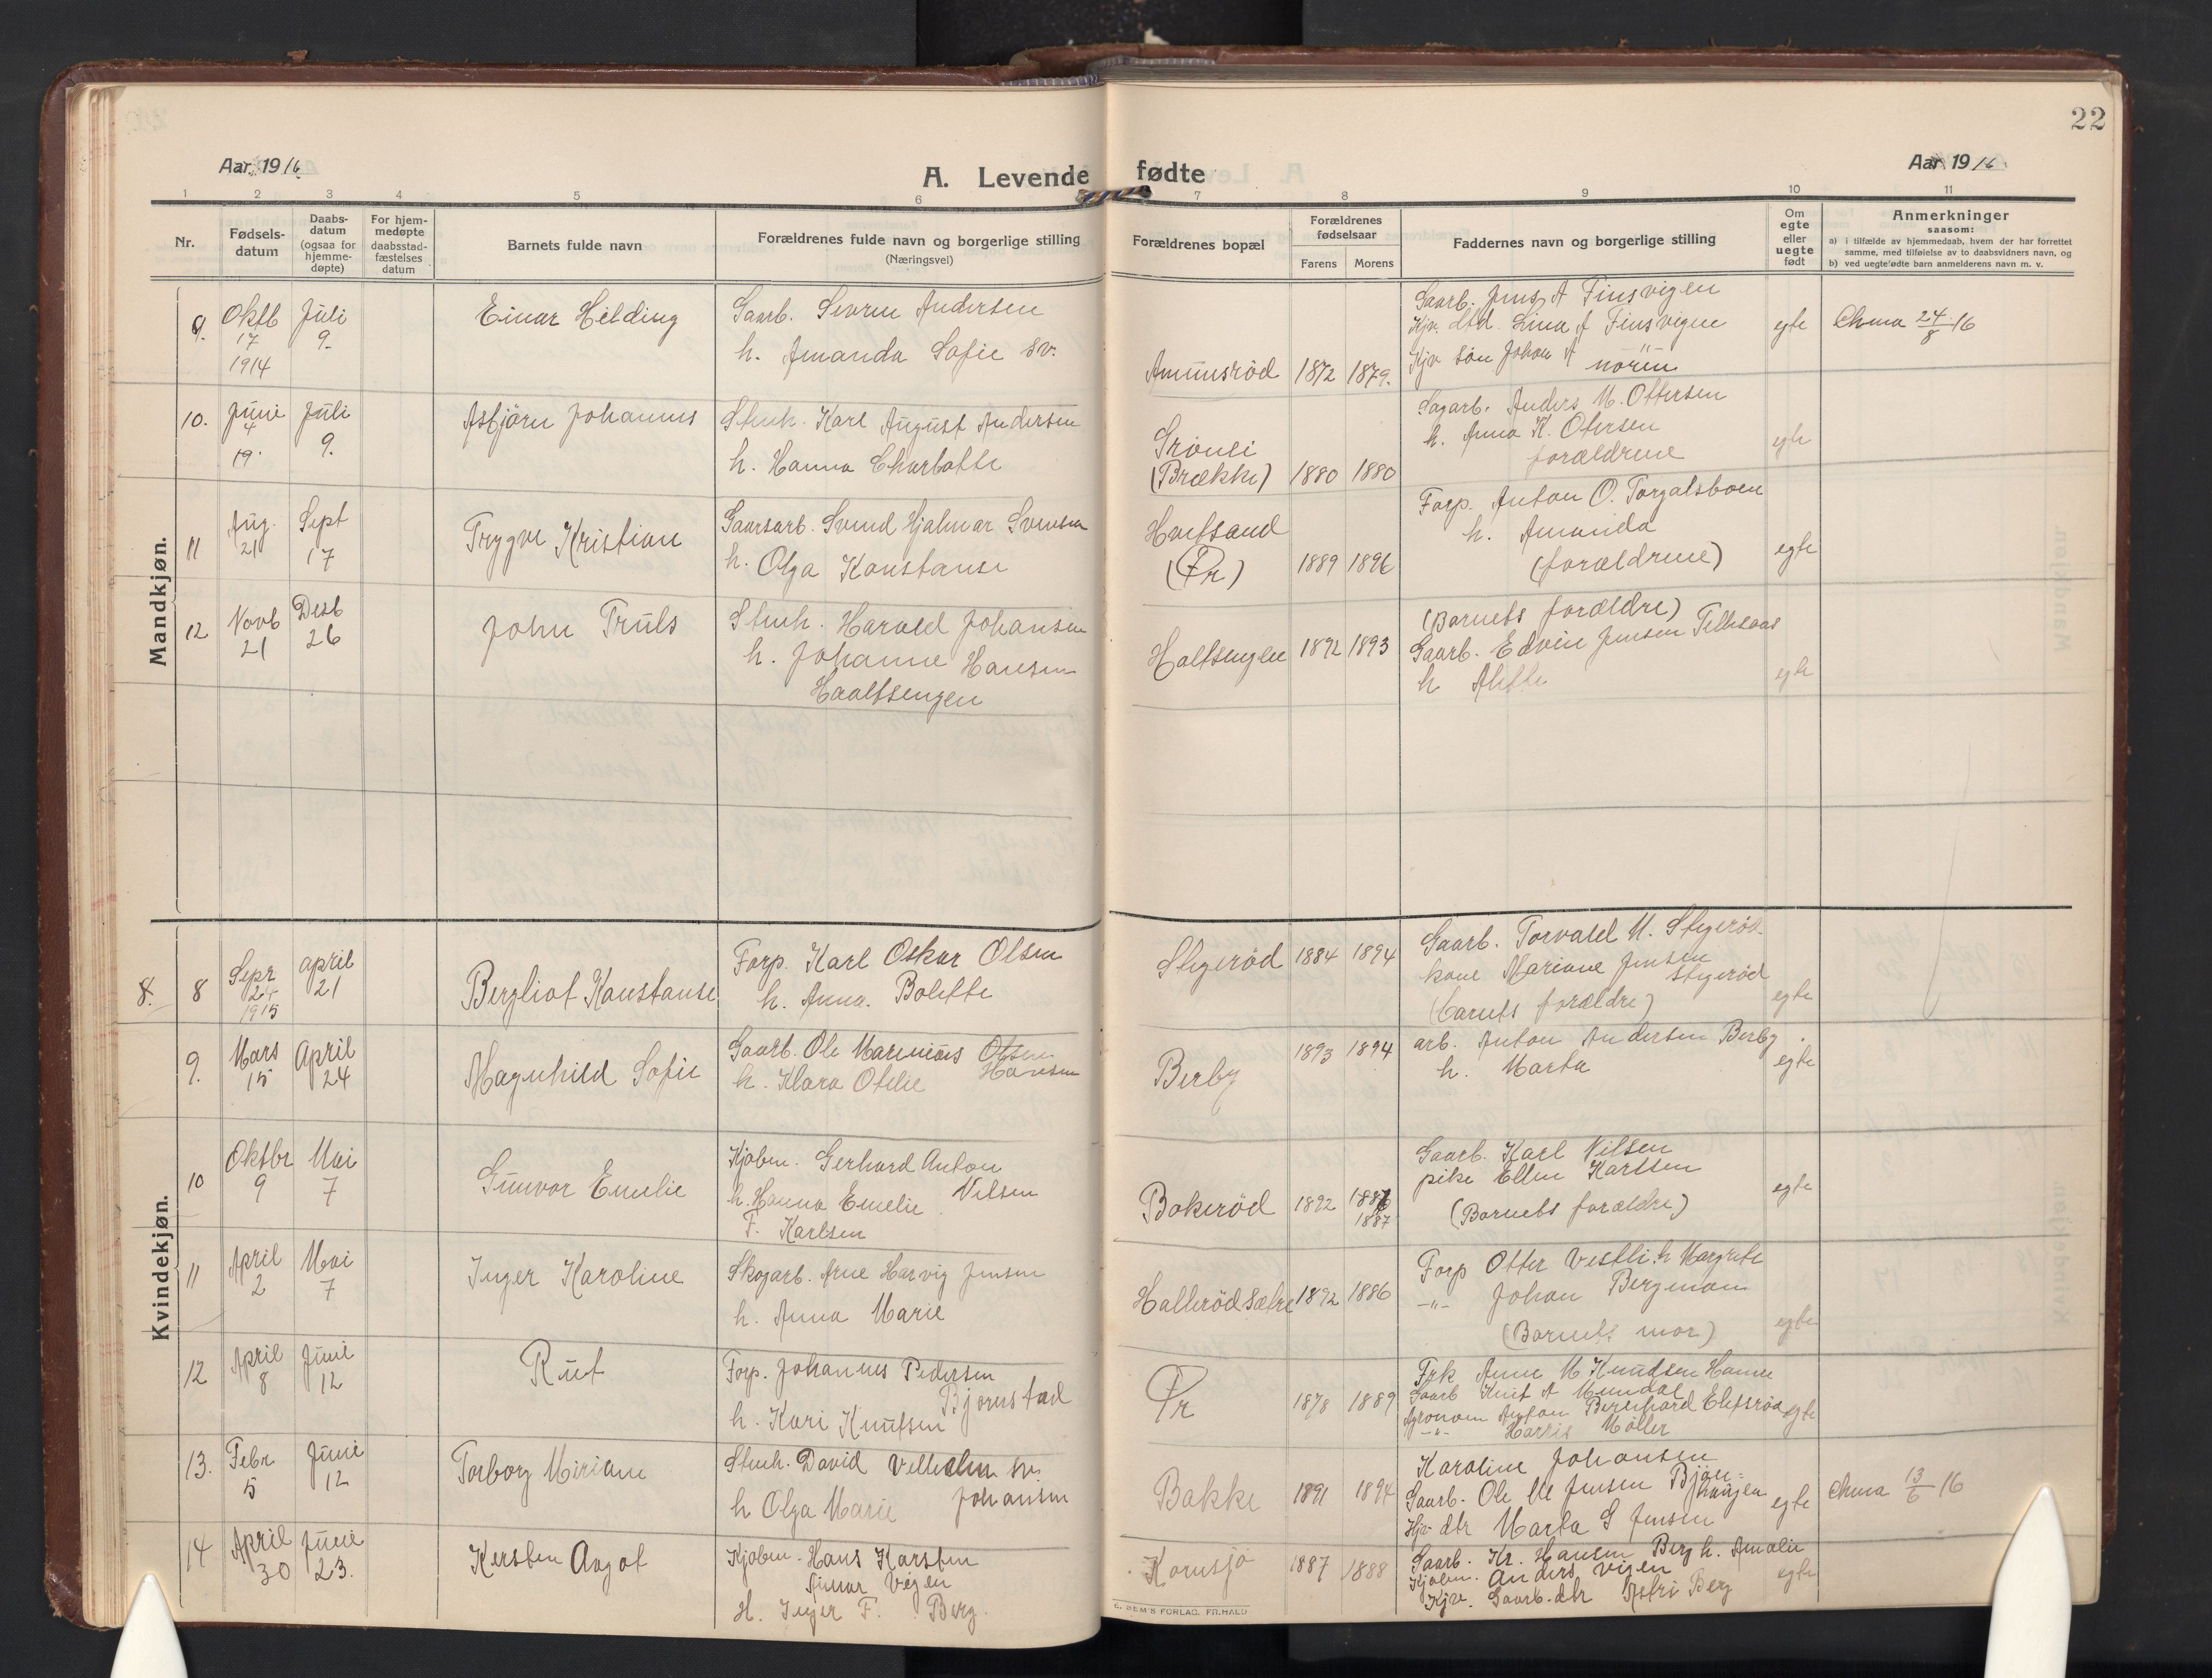 22
Aar 1916
A. Levende fødte
Aar 1916
1 2 3 4 5 6 7 8 9 10 11
Nr.
Fødsels-
datum
Daabs-
datum
(ogsaa for
hjemme-
døpte)
For hjem-
medøpte
daabsstad-
fæstelses
datum
Barnets fulde navn
Forældrenes fulde navn og borgerlige stilling
(Næringsvei)
Forældrenes bopæl
Forældrenes
fødselsaar
Farens Morens
Faddernes navn og borgerlige stilling
Om
egte
eller
uegte
født
Anmerkninger
saasom:
a) i tilfælde av hjemmedaab, hvem der har forrettet
samme, med tilføielse av to daabsvidners navn, og
b) ved uegte fødte barn anmelderens navn m. v.
Mandkjøn.
9. Oktb 17 1914
Juli 9.
Einar Hilding
Gaarb. Sevrin Andersen
h. Amanda Sofie sv.
Amunsrød 1872 1879.
Gaarb. Jens A Finsvigen
Kjv. dtd. Lina A Finsvigen
Kjv søn Johan A
egte
Chma 24/8 16
10. Juni 4 19
Juli 9.
Asbjörn Johannes
Stenh. Karl August Andersen
h. Hanna Charlotte
(Brække) 1880 1880
Sagarb. Anders M. Ottersen
h. Anna K. Otersen
forældrene
egte
11 Aug. 21
Sept 17
Trygve Kristian
Gaarsarb. Svend Hjalmar Svensen
h. Olga Konstanse
Hvitsand
(Pr) 1889 1896
Forp. Anton O. Torgalsboen
h. Amanda
(forældrene)
egte
12 Novb 21
Desb 26
John Truls
Stenh. Harald Johansen
h. Johanne Hansen
Haaltsengen
Holtsengen 1892 1893
(Barnets forældre)
Gaarb. Edvin Jensen
h Alette
egte
Kvindekjøn.
8. 8 Sepr 24 1915
april 21
Bergliot Konstanse
Forp. Karl Oskar Olsen
h. Anna. Bolette
Stygerød 1884 1894
Gaarb. Torvald M. Stygerød
kone Mariane Jensen
Stygerød
(barnets forældre)
egte
9. Mars 15
April 24
Magnhild Sofie
Gaarb. Ole Marenius Olsen
h. Klara Otelie Hansen
Berby 1893 1894
arb. Anton Andersen Berby
h. Marta
egte
10 Oktbr 9
Mai 7
Gunvor Emelie
Kjøbm. Gerhard Anton
h. Hanna Emelie Nilsen
F. Karlsen
Bokerød 1892 1886
1887
Gaarb. Karl Nilsen
pike Ellen Karlsen
(Barnets forældre)
egte
11 April 2
Mai 7
Inger Karoline
Skogarb. Arne Harvig Jensen
h. Anna Marie
Hallerød sætre 1892 1886
Forp Otter Vestli. h Margrete
-"- Johan Bergman
(Barnets mor)
egte
12 April 8
Juni 12
Rut
Forp. Johannes Pedersen
Bjørnstad
h. Kari Knutsen
Pr 1878 1889
Frk Anne M Knudsen
Gaarb Knut A Mundal
Agronom Anton Bernhard
-"- Harris Møller
egte
13. Febr 5
Juni 12
Torborg Miriam
Stenh. David Velhelm sv.
h Olga Marie Johansen
Bakke 1891 1894
Karoline Johansen
Gaarb. Ole M Jensen Bjön=
haugen
Hjv dtr Marta G Jensen
egte
Chma 13/6 16
14 April 30
Juni 23.
Kersten Aagot
Kjøbm. Hans Karsten
Vigen
H. Inger F. Berg.
Kornsjø 1887 1888
Gaarb. Kr. Hansen Berg h. Amalie
Kjøbm. Anders Vigen
Kjv. Gaarb. dtr Astri Berg
egte
FORLAG. FR.HALD